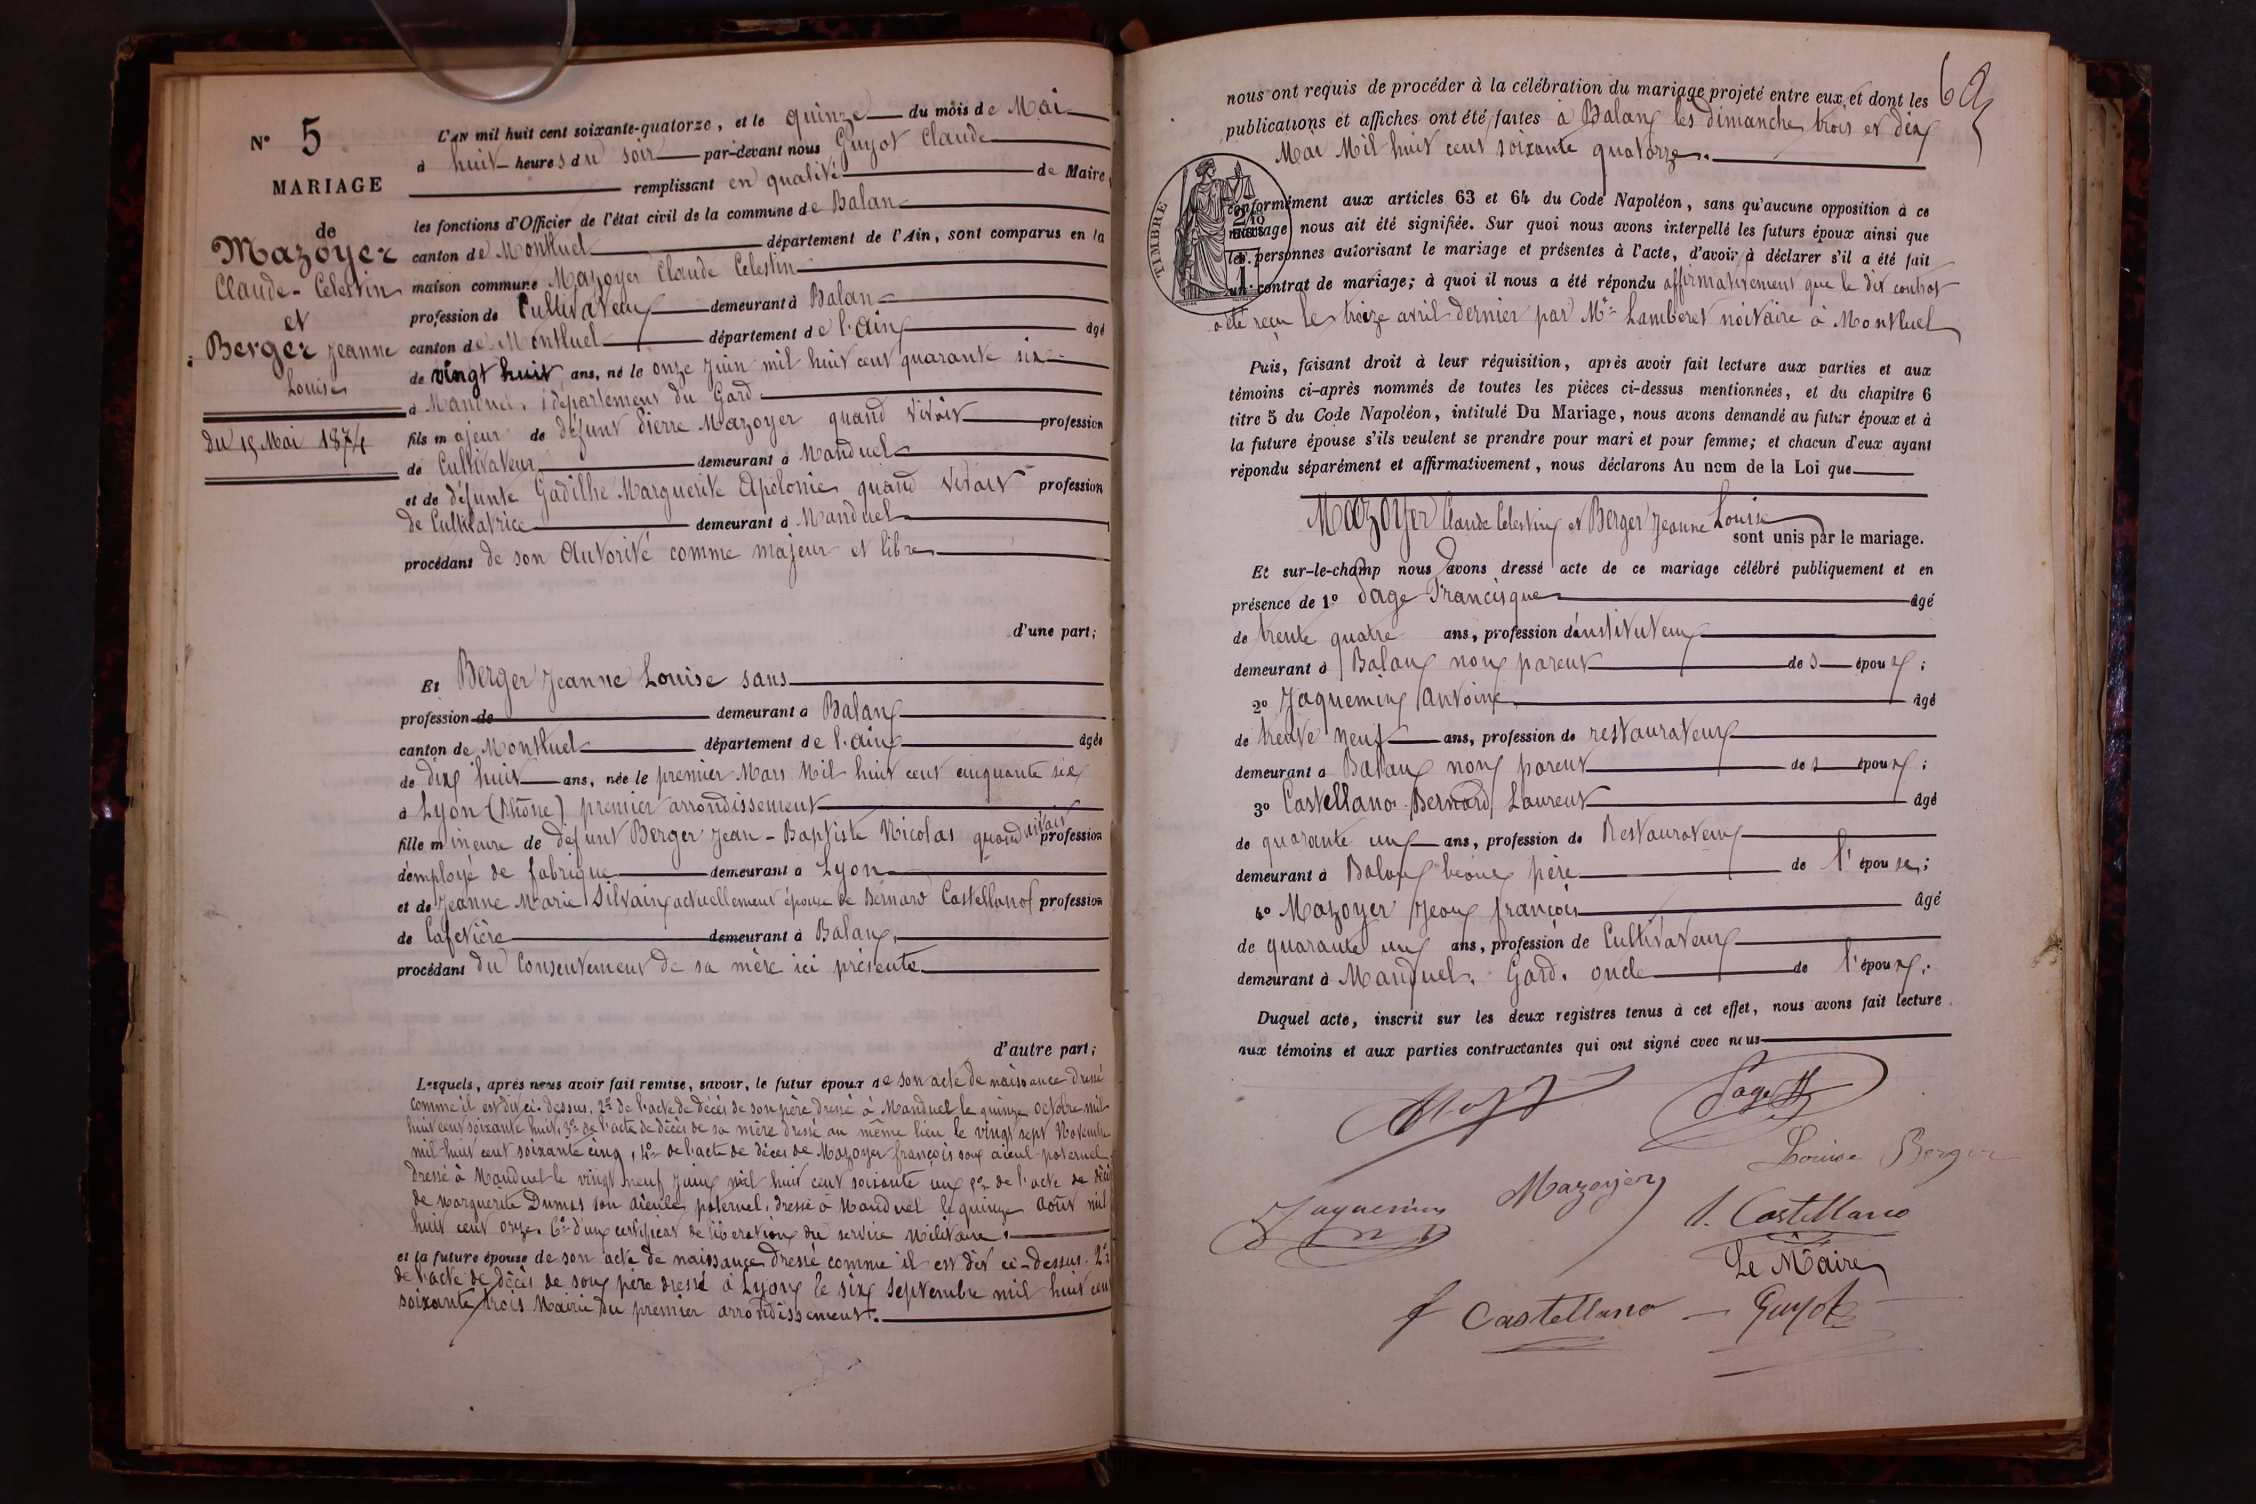 N° 5
MARIAGE
de
Mazoyer
Claude-Celestin
et
Berger Jeanne
Louise
du 15 Mai 1874
L'AN mil huit cent soixante-quatorze, et le quinze du mois de Mai
à huit heures du soir par-devant nous Guyot Claude
remplissant en qualité de Maire
les fonctions d'Officier de l'état civil de la commune de Balan
canton de Montluel département de l'Ain, sont comparus en la
maison commune Mazoyer Claude Celestin
profession de Cultivateur demeurant à Balan
canton de Montluel département de l'ain âgé
de vingt huit ans, né le onze Juin mil huit cent quarante six
à Manduel, département du Gard
fils majeur de défunt Pierre Mazoyer quand vivait profession
de Cultivateur demeurant à Manduel
et de défunte Gadilhe Marguerite Apolonie quand vivait profession
de Cultivatrice demeurant à Manduel
procédant de son Autorité comme majeur et libre
d'une part;
Et Berger Jeanne Louise sans
profession de demeurant à Balan
canton de Montluel département de l'ain âgée
de dix huit ans, née le premier Mars Mil huit cent cinquante six
à Lyon (Rhône) premier arrondissement
fille mineure de défunt Berger Jean-Baptiste Nicolas quand vivait profession
d'employé de fabrique demeurant à Lyon
et de Jeanne Marie Silvain actuellement épouse de Bernard Castellano profession
de Cafetière demeurant à Balan
procédant du Consentement de sa mère ici présente
d'autre part;
Lesquels, après nous avoir fait remise, savoir, le futur époux de son acte de naissance dressé
comme il est dit ci-dessus, 2° de l'acte de décès de son père dressé à Manduel le quinze octobre mil
huit cent soixante huit, 3° de l'acte de décès de sa mère dressé au même lieu le vingt sept Novembre
mil huit cent soixante cinq, 4° de l'acte de décès de Mazoyer françois son aieul paternel
dressé à Manduel le vingt neuf Juin mil huit cent soixante un 5° de l'acte de décès
de Marguerite Dumas son aieule paternel, dressé à Manduel le quinze Août mil
huit cent onze. 6° d'un certificat de libération du service militaire.
et la future épouse de son acte de naissance dressé comme il est dit ci-dessus. 2°
de l'acte de décès de son père dressé à Lyon le six Septembre mil huit cent
soixante trois Mairie du premier arrondissement.
nous ont requis de procéder à la célébration du mariage projeté entre eux, et dont les
publications et affiches ont été faites à Balan les dimanche trois et dix
Mai Mil huit cent soixante quatorze.
TIMBRE
conformément aux articles 63 et 64 du Code Napoléon, sans qu'aucune opposition à ce
mariage nous ait été signifiée. Sur quoi nous avons interpellé les futurs époux ainsi que
les personnes autorisant le mariage et présentes à l'acte, d'avoir à déclarer s'il a été fait
un contrat de mariage; à quoi il nous a été répondu affirmativement que le dit contrat
a été reçu le treize avril dernier par Me Lamberet notaire à Montluel
Puis, faisant droit à leur réquisition, après avoir fait lecture aux parties et aux
témoins ci-après nommés de toutes les pièces ci-dessus mentionnées, et du chapitre 6
titre 5 du Code Napoléon, intitulé Du Mariage, nous avons demandé au futur époux et à
la future épouse s'ils veulent se prendre pour mari et pour femme; et chacun d'eux ayant
répondu séparément et affirmativement, nous déclarons Au nom de la Loi que
Mazoyer Claude Celestin et Berger Jeanne Louise
sont unis par le mariage.
Et sur-le-champ nous avons dressé acte de ce mariage célébré publiquement et en
présence de 1° Page Francisque âgé
de trente quatre ans, profession d'instituteur
demeurant à Balan non parent de s époux;
2° Jaquemin Antoine âgé
de trente neuf ans, profession de restaurateur
demeurant à Balan non parent de s époux;
3° Castellano Bernard Laurent âgé
de quarante un ans, profession de Restaurateur
demeurant à Balan beau père de l'épouse;
4° Mazoyer Jean françois âgé
de quarante un ans, profession de Cultivateur
demeurant à Manduel. Gard. oncle de l'époux;
Duquel acte, inscrit sur les deux registres tenus à cet effet, nous avons fait lecture
aux témoins et aux parties contractantes qui ont signé avec nous
Page
Louise Berger
Jaquemin
Mazoyer
Castellano
Le Maire
f Castellano
Guyot